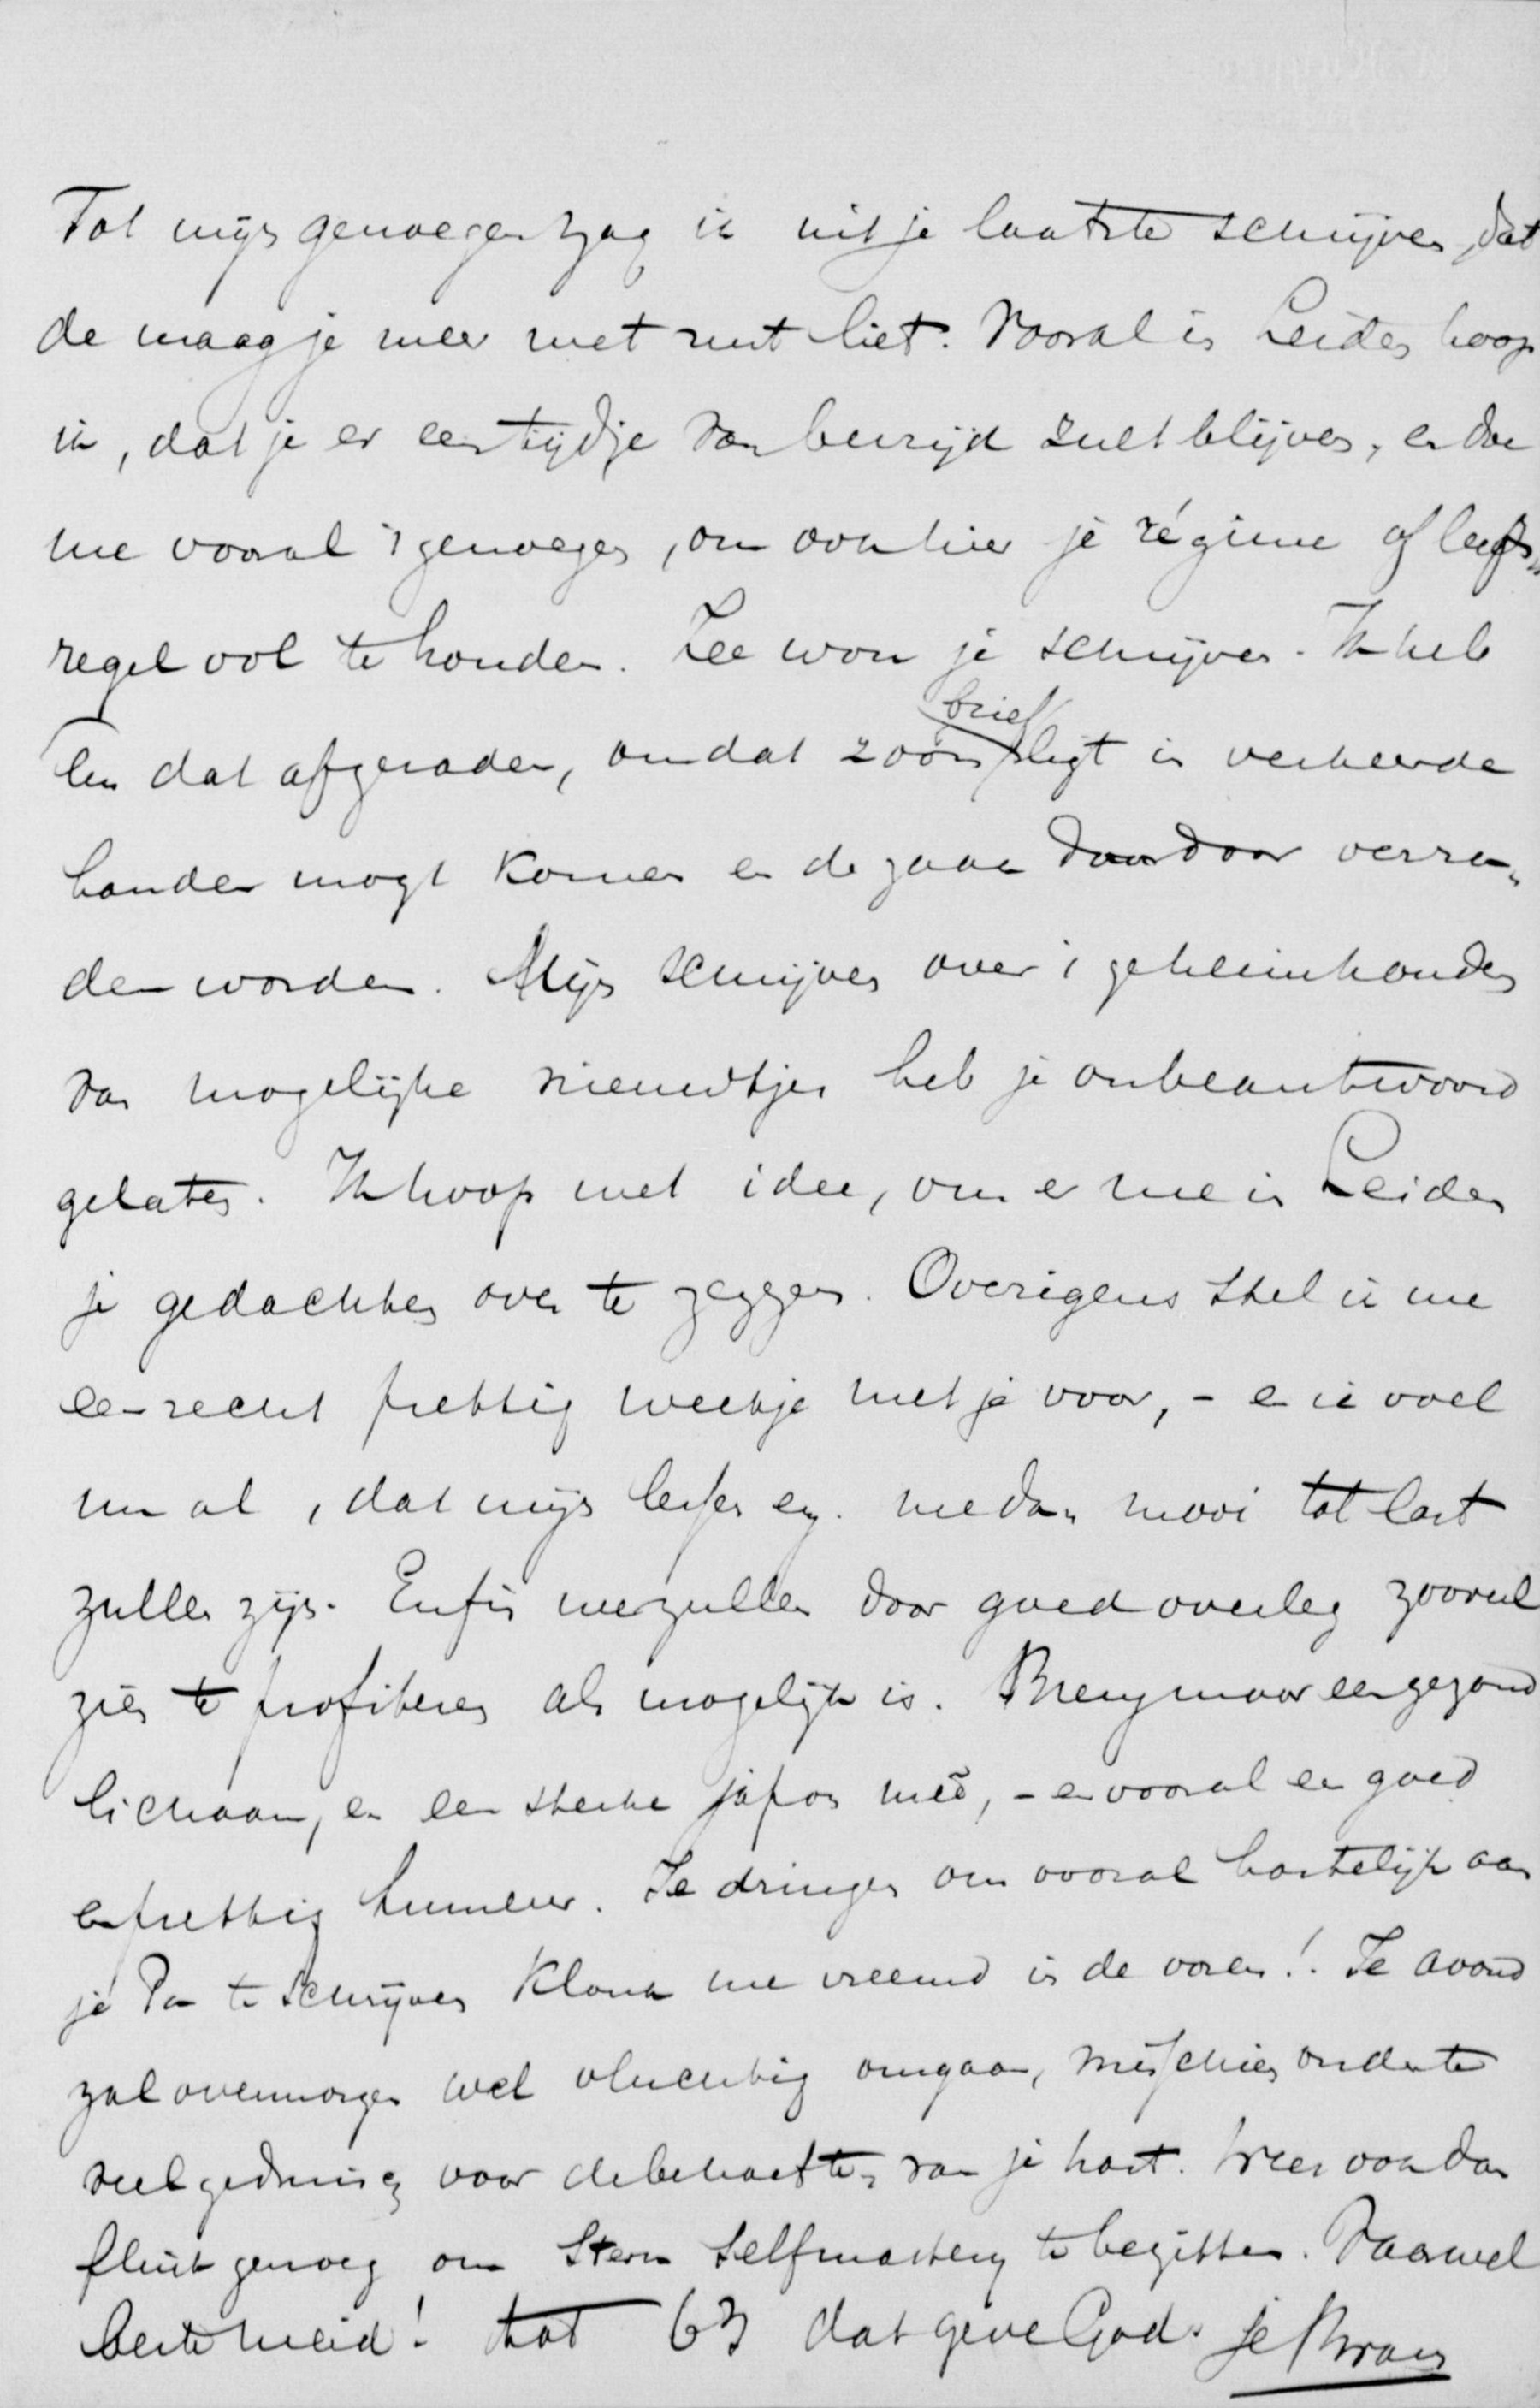 Tot mijn genoegen zag ik uit je laatste schrijven, dat
de maag je meer met rust liet. Vooral in Leiden hoop
ik, dat je er een tijdje van bevrijd zult blijven, en doe
me vooral 't genoegen, om ook hier je régime of leefs„
regel vol te houden. Zee wou je schrijven. Ik heb
hem dat afgeraden, omdat zoo'n brief ligt in verkeerde
handen mogt komen en de zaak daardoor verra„
den worden. Mijn schrijven over 't geheimhouden
van mogelijke nieuwtjes heb je onbeantwoord
gelaten. Ik hoop met idee, om er me in Leiden
je gedachten over te zeggen. Overigens stel ik me
een recht prettig weekje met je voor, - en ik voel
nu al, dat mijn lessen eg. me dan mooi tot last
zullen zijn. Enfin we zullen door goed overleg zooveel
zien te profiteren als mogelijk is. Breng maar een gezond
lichaam, en een sterke japon meê, - en vooral een goed
en prettig humeur. Te dringen om vooral hartelijk aan
je Pa te schrijven klonk me vreemd in de ooren!. Je avond
zal overmorgen wel vluchtig omgaan, misschien onder te
veel gedruisch voor de behoeften van je hart. Wees ook dan
flink genoeg om Stern selfmastery te bezitten. Vaarwel
beste meid! tot 63 dat geve God. Je Bram